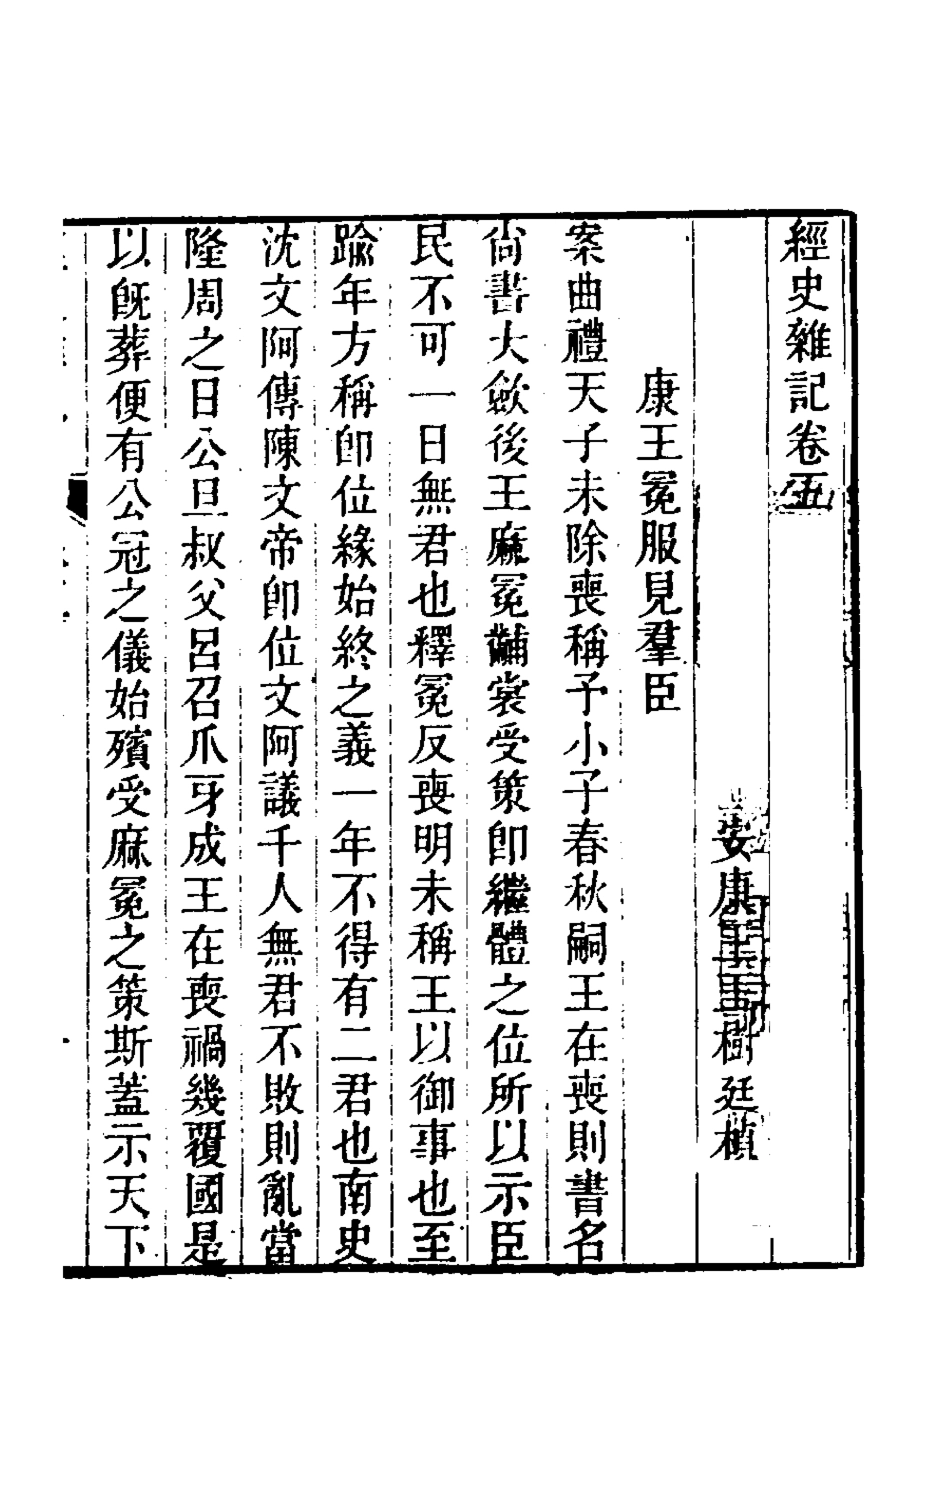 經史雜記卷五
安康王玉樹廷楨
康王冕服見羣臣
案曲禮天子未除喪稱予小子春秋嗣王在喪則書名
尙書大歛後王麻冕黼裳受策卽繼體之位所以示臣
民不可一日無君也釋冕反喪明未稱王以御事也至
踰年方稱卽位緣始終之義一年不得有二君也南史
沈文阿傳陳文帝卽位文阿議千人無君不敗則亂當
隆周之日公旦叔父呂召爪牙成王在喪禍幾覆國是
以旣葬便有公冠之儀始殯受麻冕之策斯蓋示天下